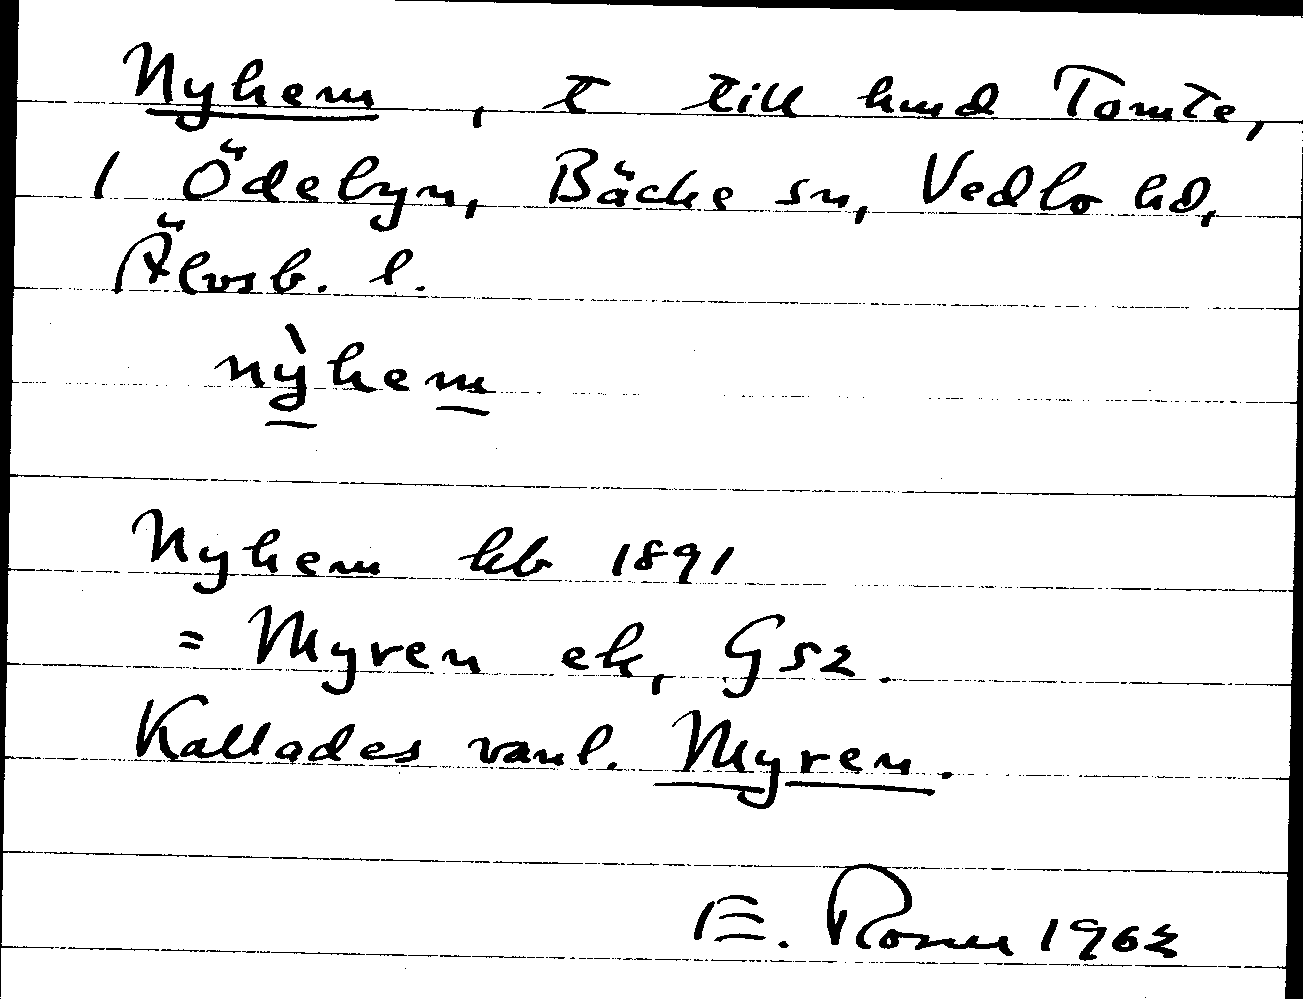 Nyhem, t till hmd Tomte,
1 Ödebyn, Bäcke sn, Vedbo hd,
Älvsb. l.
nỳhem
Nyhem kb 1891
= Myren ek, G52.
Kallades vanl. Myren.
E. Rosell 1962